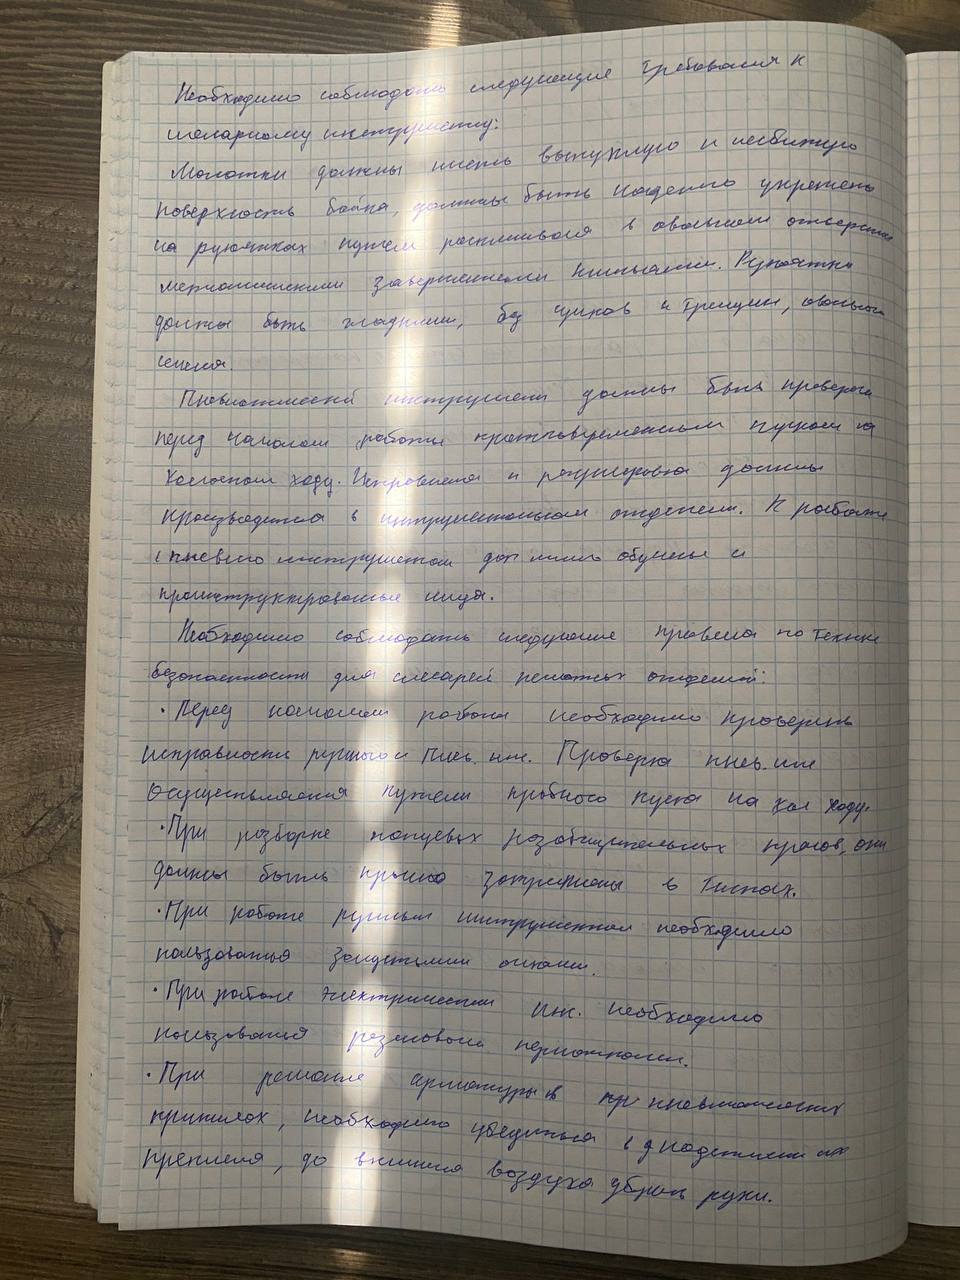 Необходимо соблюдать следующие требования к
слесарному инструменту:
Молотки должны иметь выпуклую и несбитую
поверхность бойка, должны быть надежно укреплены
на рукоятках путем расклинивания в овальном отверстии
металлическими завершенными клиньями. Рукоятки
должны быть гладкими, без сучков и трещин, овального
сечения.
Пневматический инструмент должны быть проверен
перед началом работы кратковременным пуском на
холостом ходу. Исправления и регулировка должны
производится в интрументальном отделении. К работе
с пневмо инструментом доп лишь обучены и
проинструктированые лица.
Необходимо соблюдать следующие правила по технике
безопасности для слесарей ремотных отделений:
· Перед началом работы необходимо проверить
исправность ручного и пнев. ин. Проверка пнев. ин
осуществляется путем пробного пуска на хол ходу.
· При разборке концевых разобщительных кранов, они
должны быть прочно затрифаны в тисках.
· При работе ручным инструментом необходимо
пользоваться защитными очками.
· При работе электрическим ин. необходимо
пользоваться резиновыми перчатками.
· При ремонте арматуры в пр пневматических
прижимах, необходимо убедиться в надежности их
крепления, до включения воздуха убрать руки.